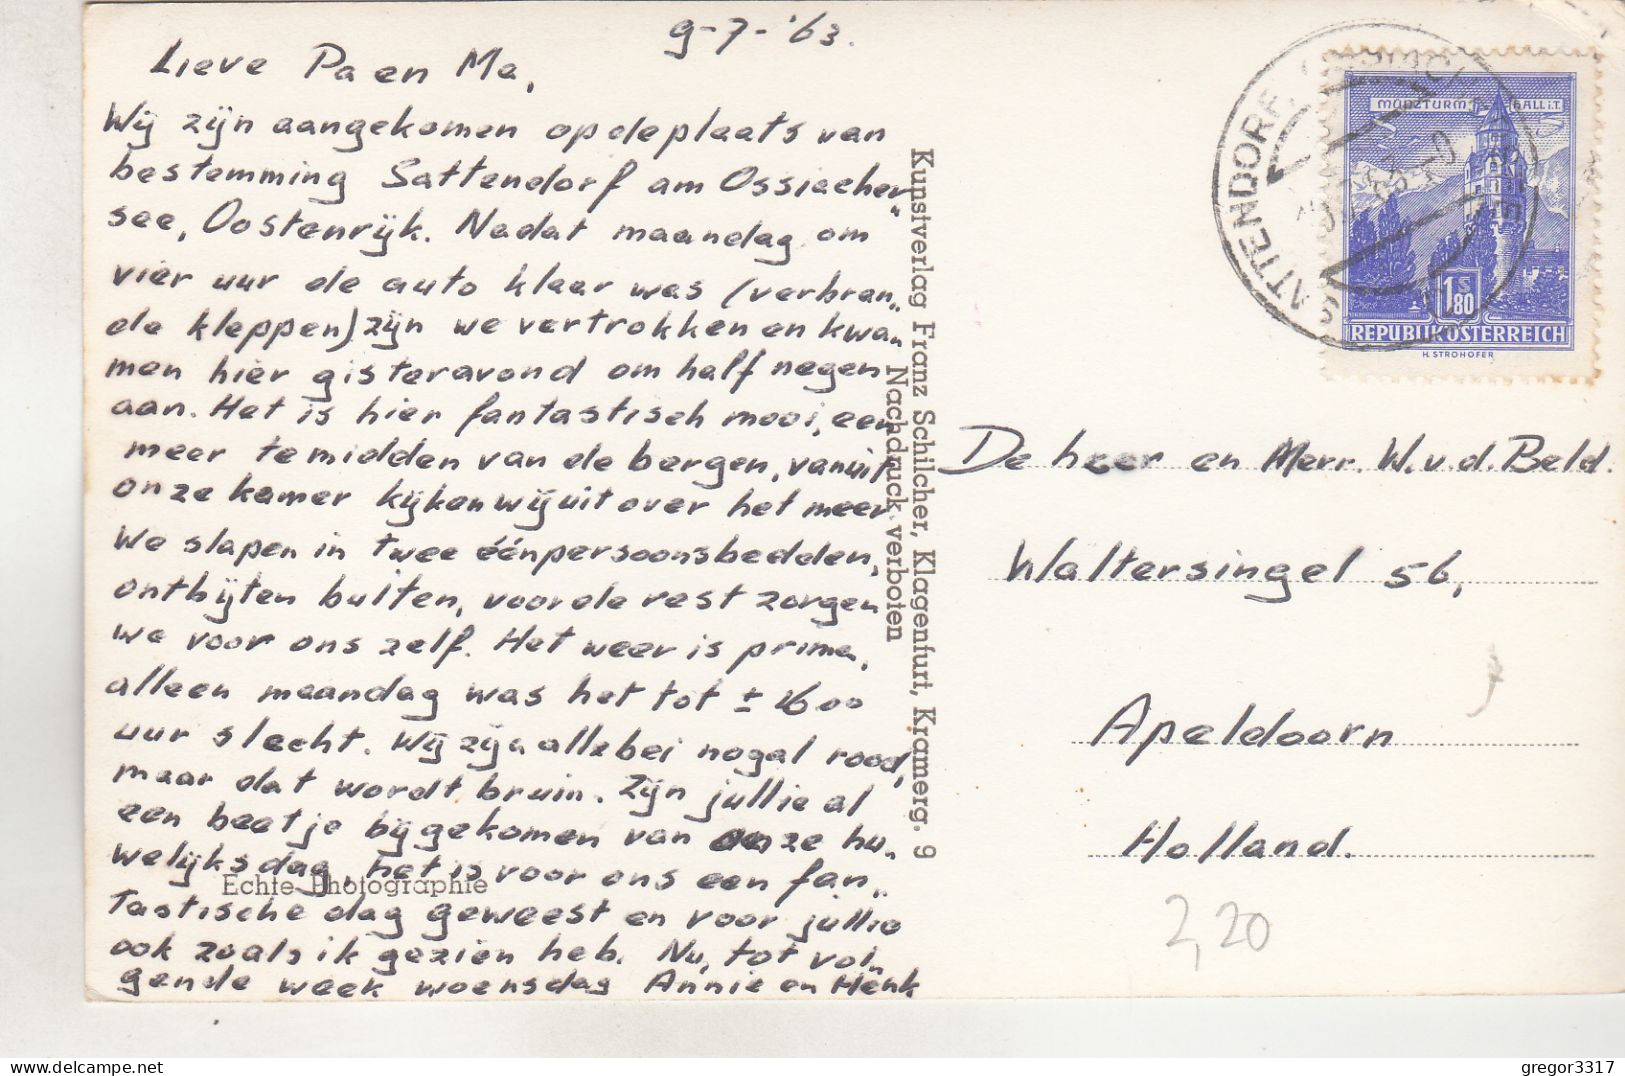 9-7-'63.
Lieve Pa en Ma,
Wij zijn aangekomen op de plaats van
bestemming Sattendorf am Ossiacher-
see, Oostenrijk. Nadat maandag om
vier uur de auto klaar was (verbran-
de kleppen) zijn we vertrokken en kwa-
men hier gisteravond om half negen
aan. Het is hier fantastisch mooi, een
meer temidden van de bergen, vanuit
onze kamer kijken wij uit over het meer
We slapen in twee éénpersoonsbedden,
ontbijten buiten, voor de rest zorgen
we voor ons zelf. Het weer is prima,
alleen maandag was het tot ± 1600
uur slecht. Wij zijn allebei nogal rood,
maar dat wordt bruin. Zijn jullie al
een beetje bijgekomen van onze hu-
welijksdag, het is voor ons een fan-
tastische dag geweest en voor jullie
ook zoals ik gezien heb. Nu, tot vol-
gende week woensdag Annie en Henk
Echte Photographie
Kunstverlag Franz Schilcher, Klagenfurt, Kramerg. 9
Nachdruck verboten
SATTENDORF
MÜNZTURM HALL i.T.
1 S 80
REPUBLIK ÖSTERREICH
H. STROHOFER
De heer en Mevr. W. v. d. Beld.
Waltersingel 56,
Apeldoorn
Holland.
2,20
gregor3317